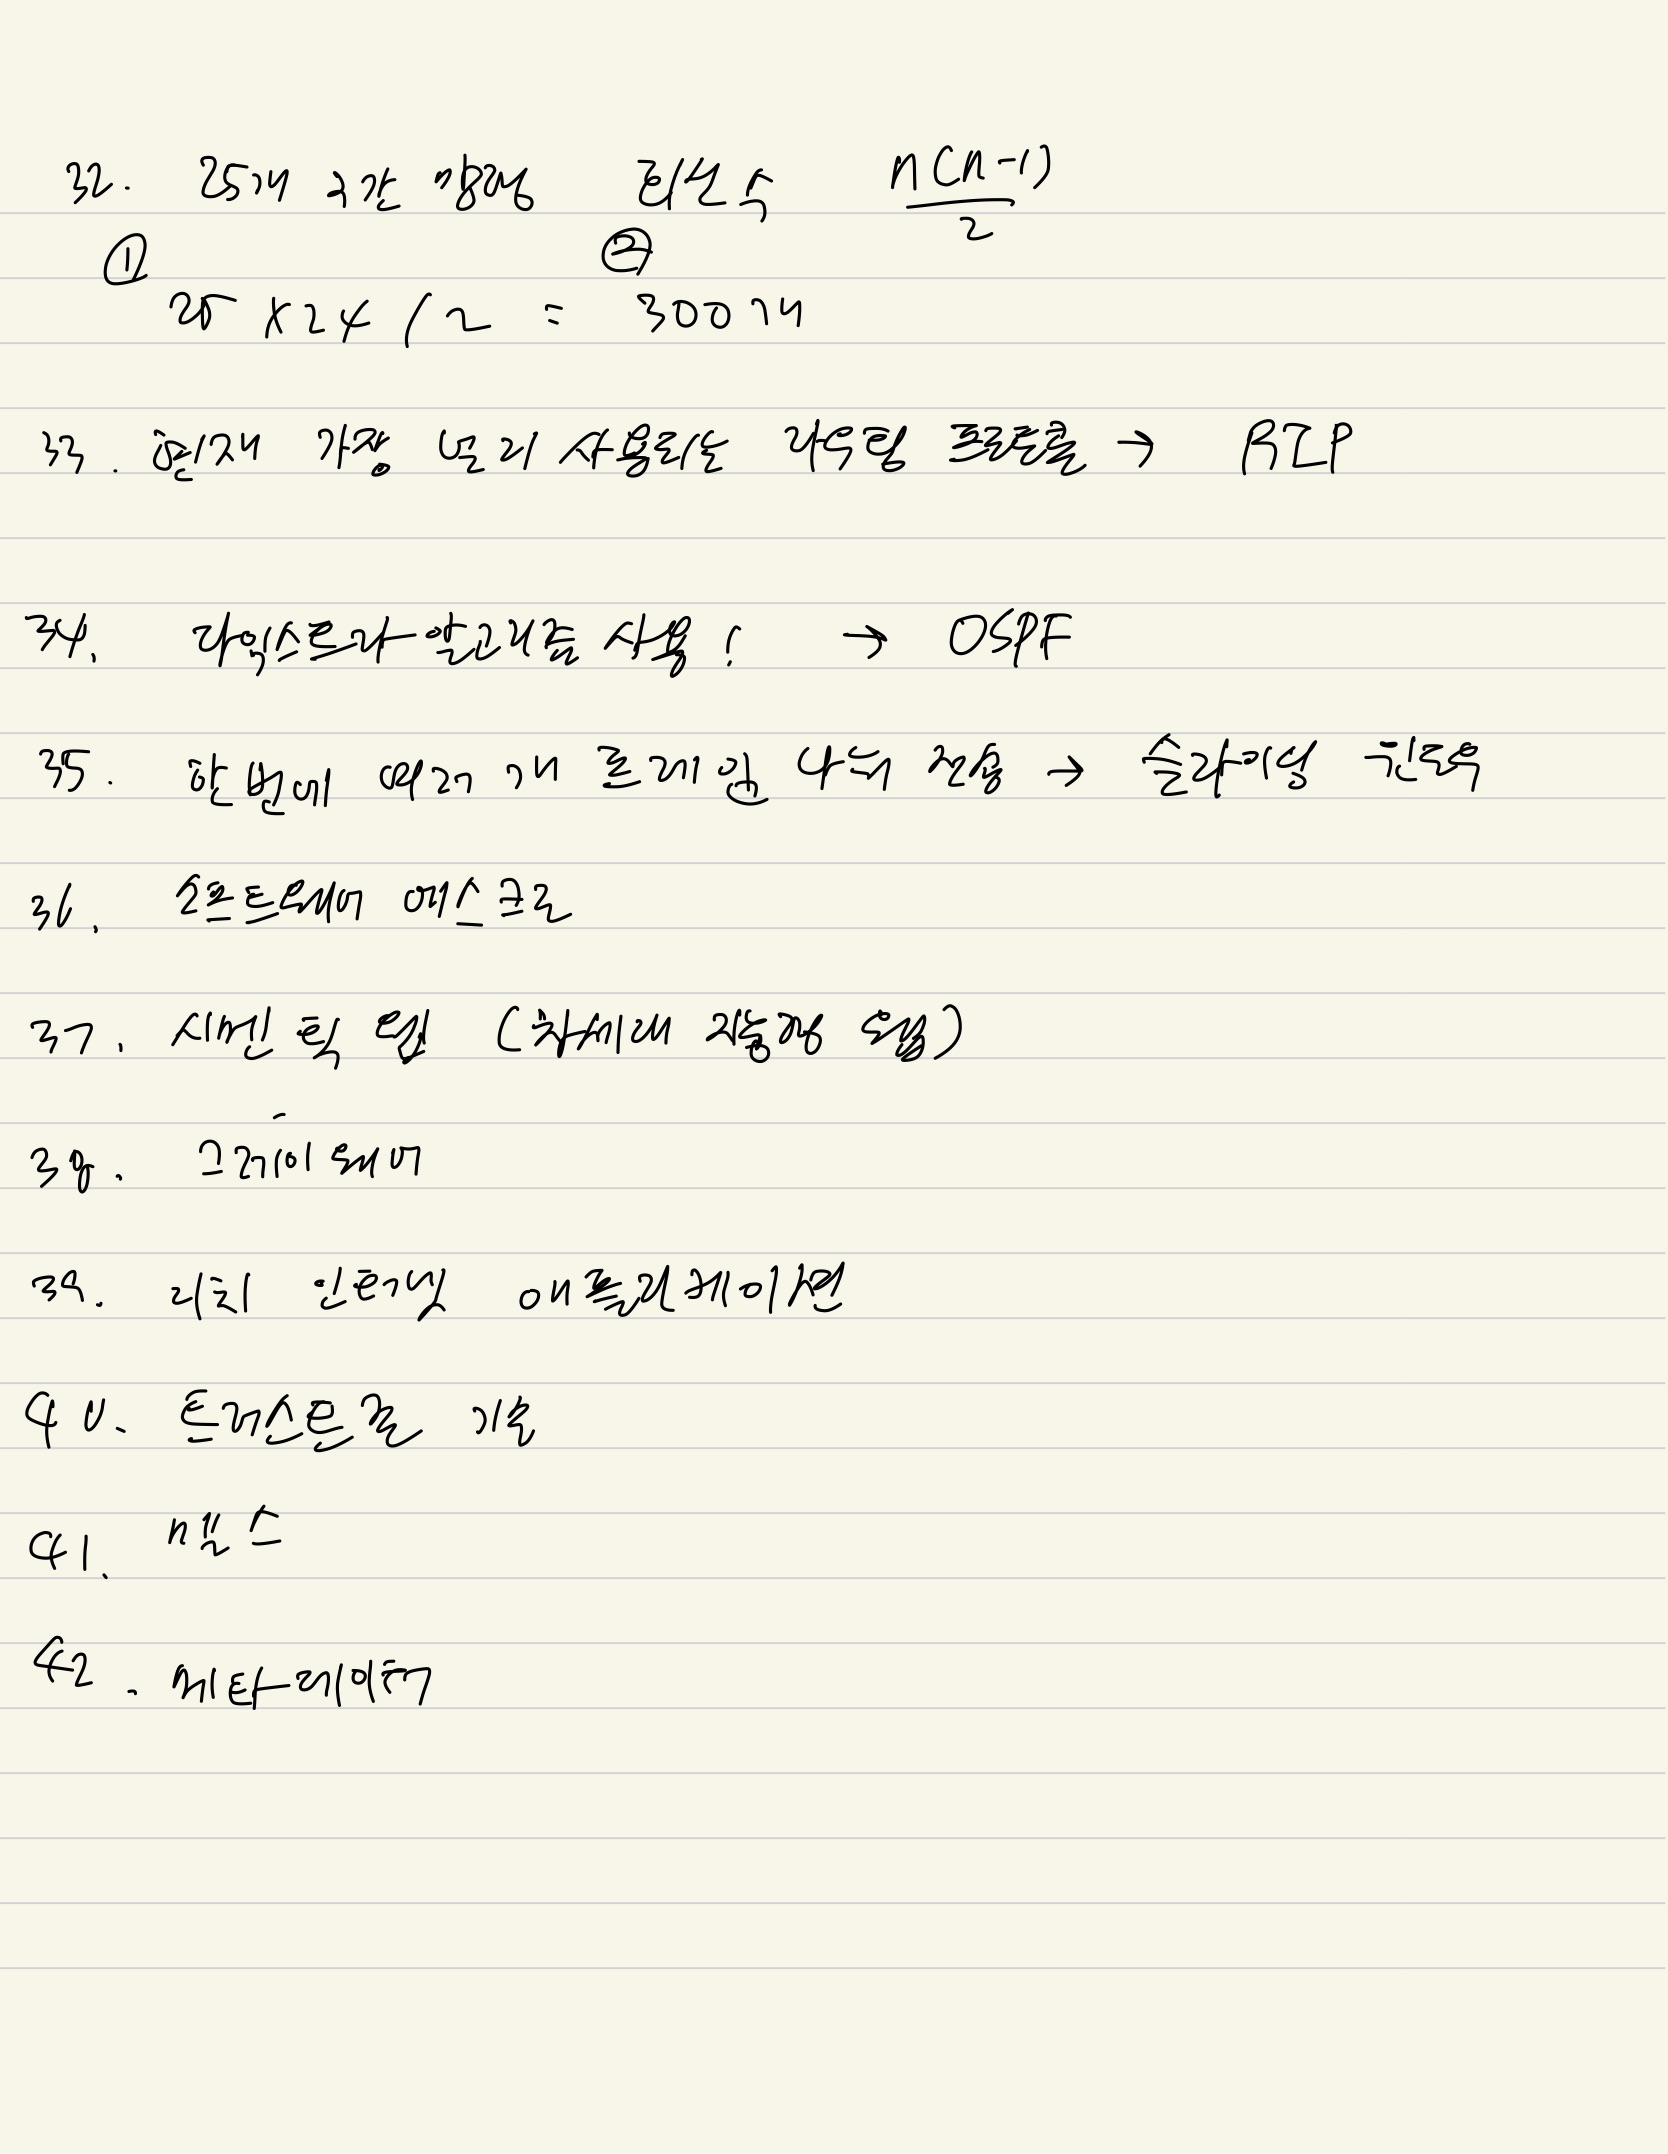 32. 25개 국간 망형 회선 수 n(n-1)/2
① ②
25 x 24 / 2 = 300개
33. 현재 가장 널리 사용되는 라우팅 프로토콜 → RIP
34. 다익스트라 알고리즘 사용! → OSPF
35. 한번에 여러 개 프레임 나눠 전송 → 슬라이딩 윈도우
36. 소프트웨어 에스크로
37. 시멘틱 웹 (차세대 지능형 웹)
38. 그레이웨어
39. 리치 인터넷 애플리케이션
40. 트러스트존 기술
41. n밀스
42. 메타데이터